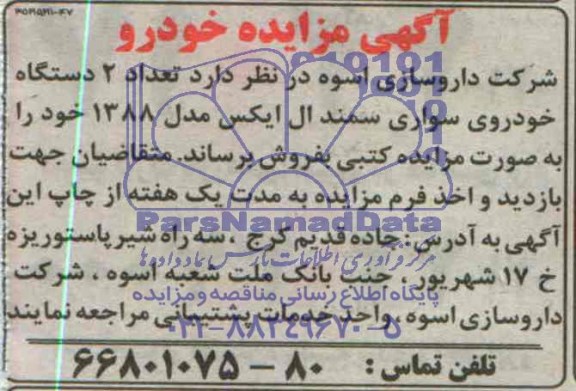 آگهی مزایده خودرو
شرکت داروسازی اسوه در نظر دارد تعداد ۲ دستگاه
خودروی سواری سمند ال ایکس مدل ۱۳۸۸ خود را
به صورت مزایده کتبی بفروش برساند. متقاضیان جهت
بازدید و اخذ فرم مزایده به مدت یک هفته از چاپ این
ParsNamadData
آگهی به آدرس: جاده قدیم کرج ، سه راه شیر پاستوریزه
مرکز فرآوری اطلاعات پارس نماد داده ها
خ ۱۷ شهریور ، جنب بانک ملت شعبه اسوه ، شرکت
پایگاه اطلاع رسانی مناقصه و مزایده
داروسازی اسوه، واحد خدمات پشتیبانی مراجعه نمایند
۰۲۱-۸۸۳۴۹۶۷۰-۵
تلفن تماس : ۸۰ - ۶۶۸۰۱۰۷۵